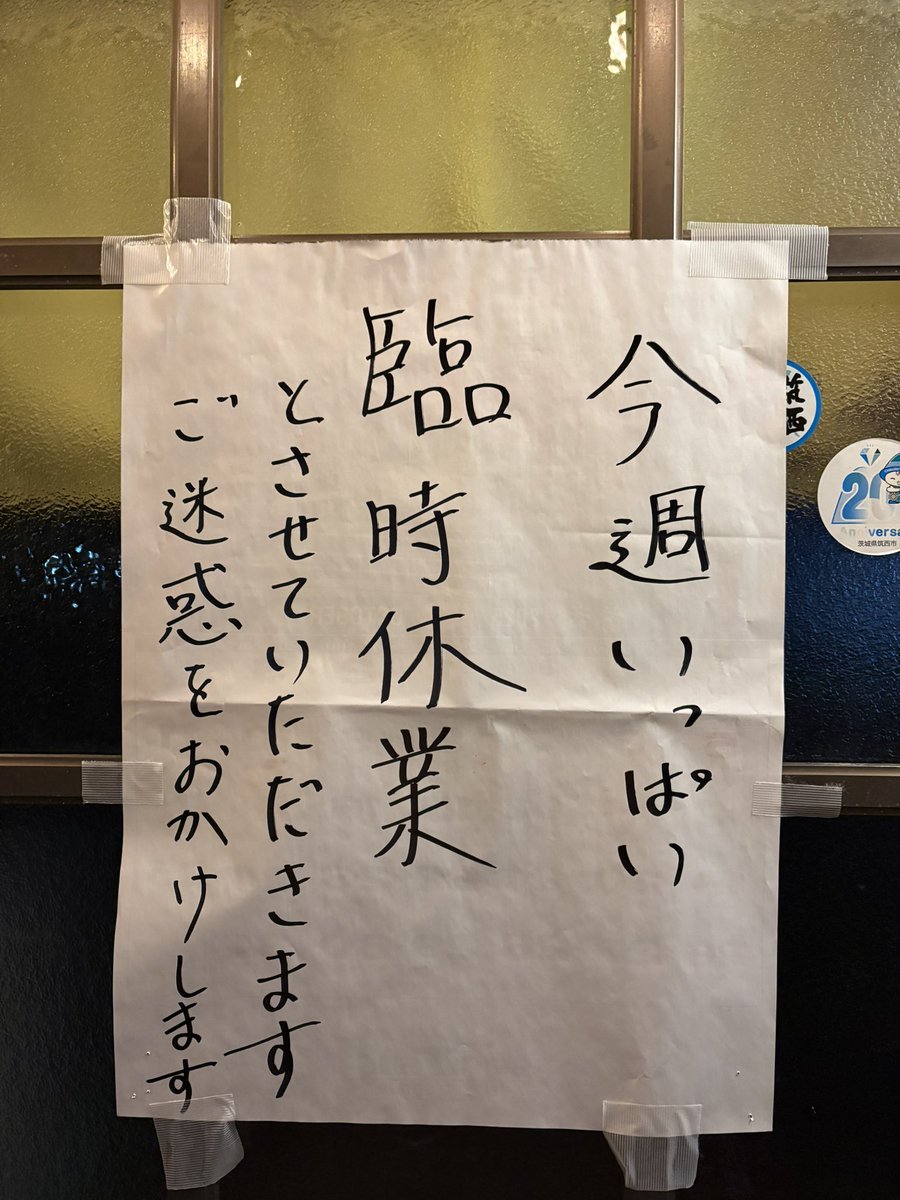 今週いっぱい
臨時休業
とさせていただきます
ご迷惑をおかけします
筑西
20
Anniversa
茨城県筑西市